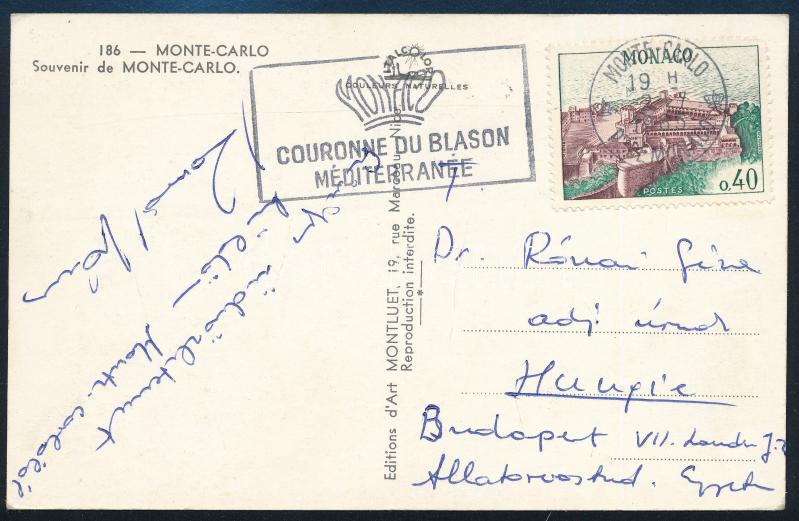 186 — MONTE-CARLO
Souvenir de MONTE-CARLO.
ITALCOLOR
COULEURS NATURELLES
MONACO
COURONNE DU BLASON
MÉDITERRANÉE
MONTE-CARLO
19 H
MONACO
POSTES
0,40
Editions d'Art MONTLUET, 19, rue Marceau, Nice
Reproduction interdite.
üdvözletemet
Monte-carloból
Dr. Rónai Géza
adj. úrnak
Hungrie
Budapest VII. Landler J. u
Állatorvostud. Egyetem